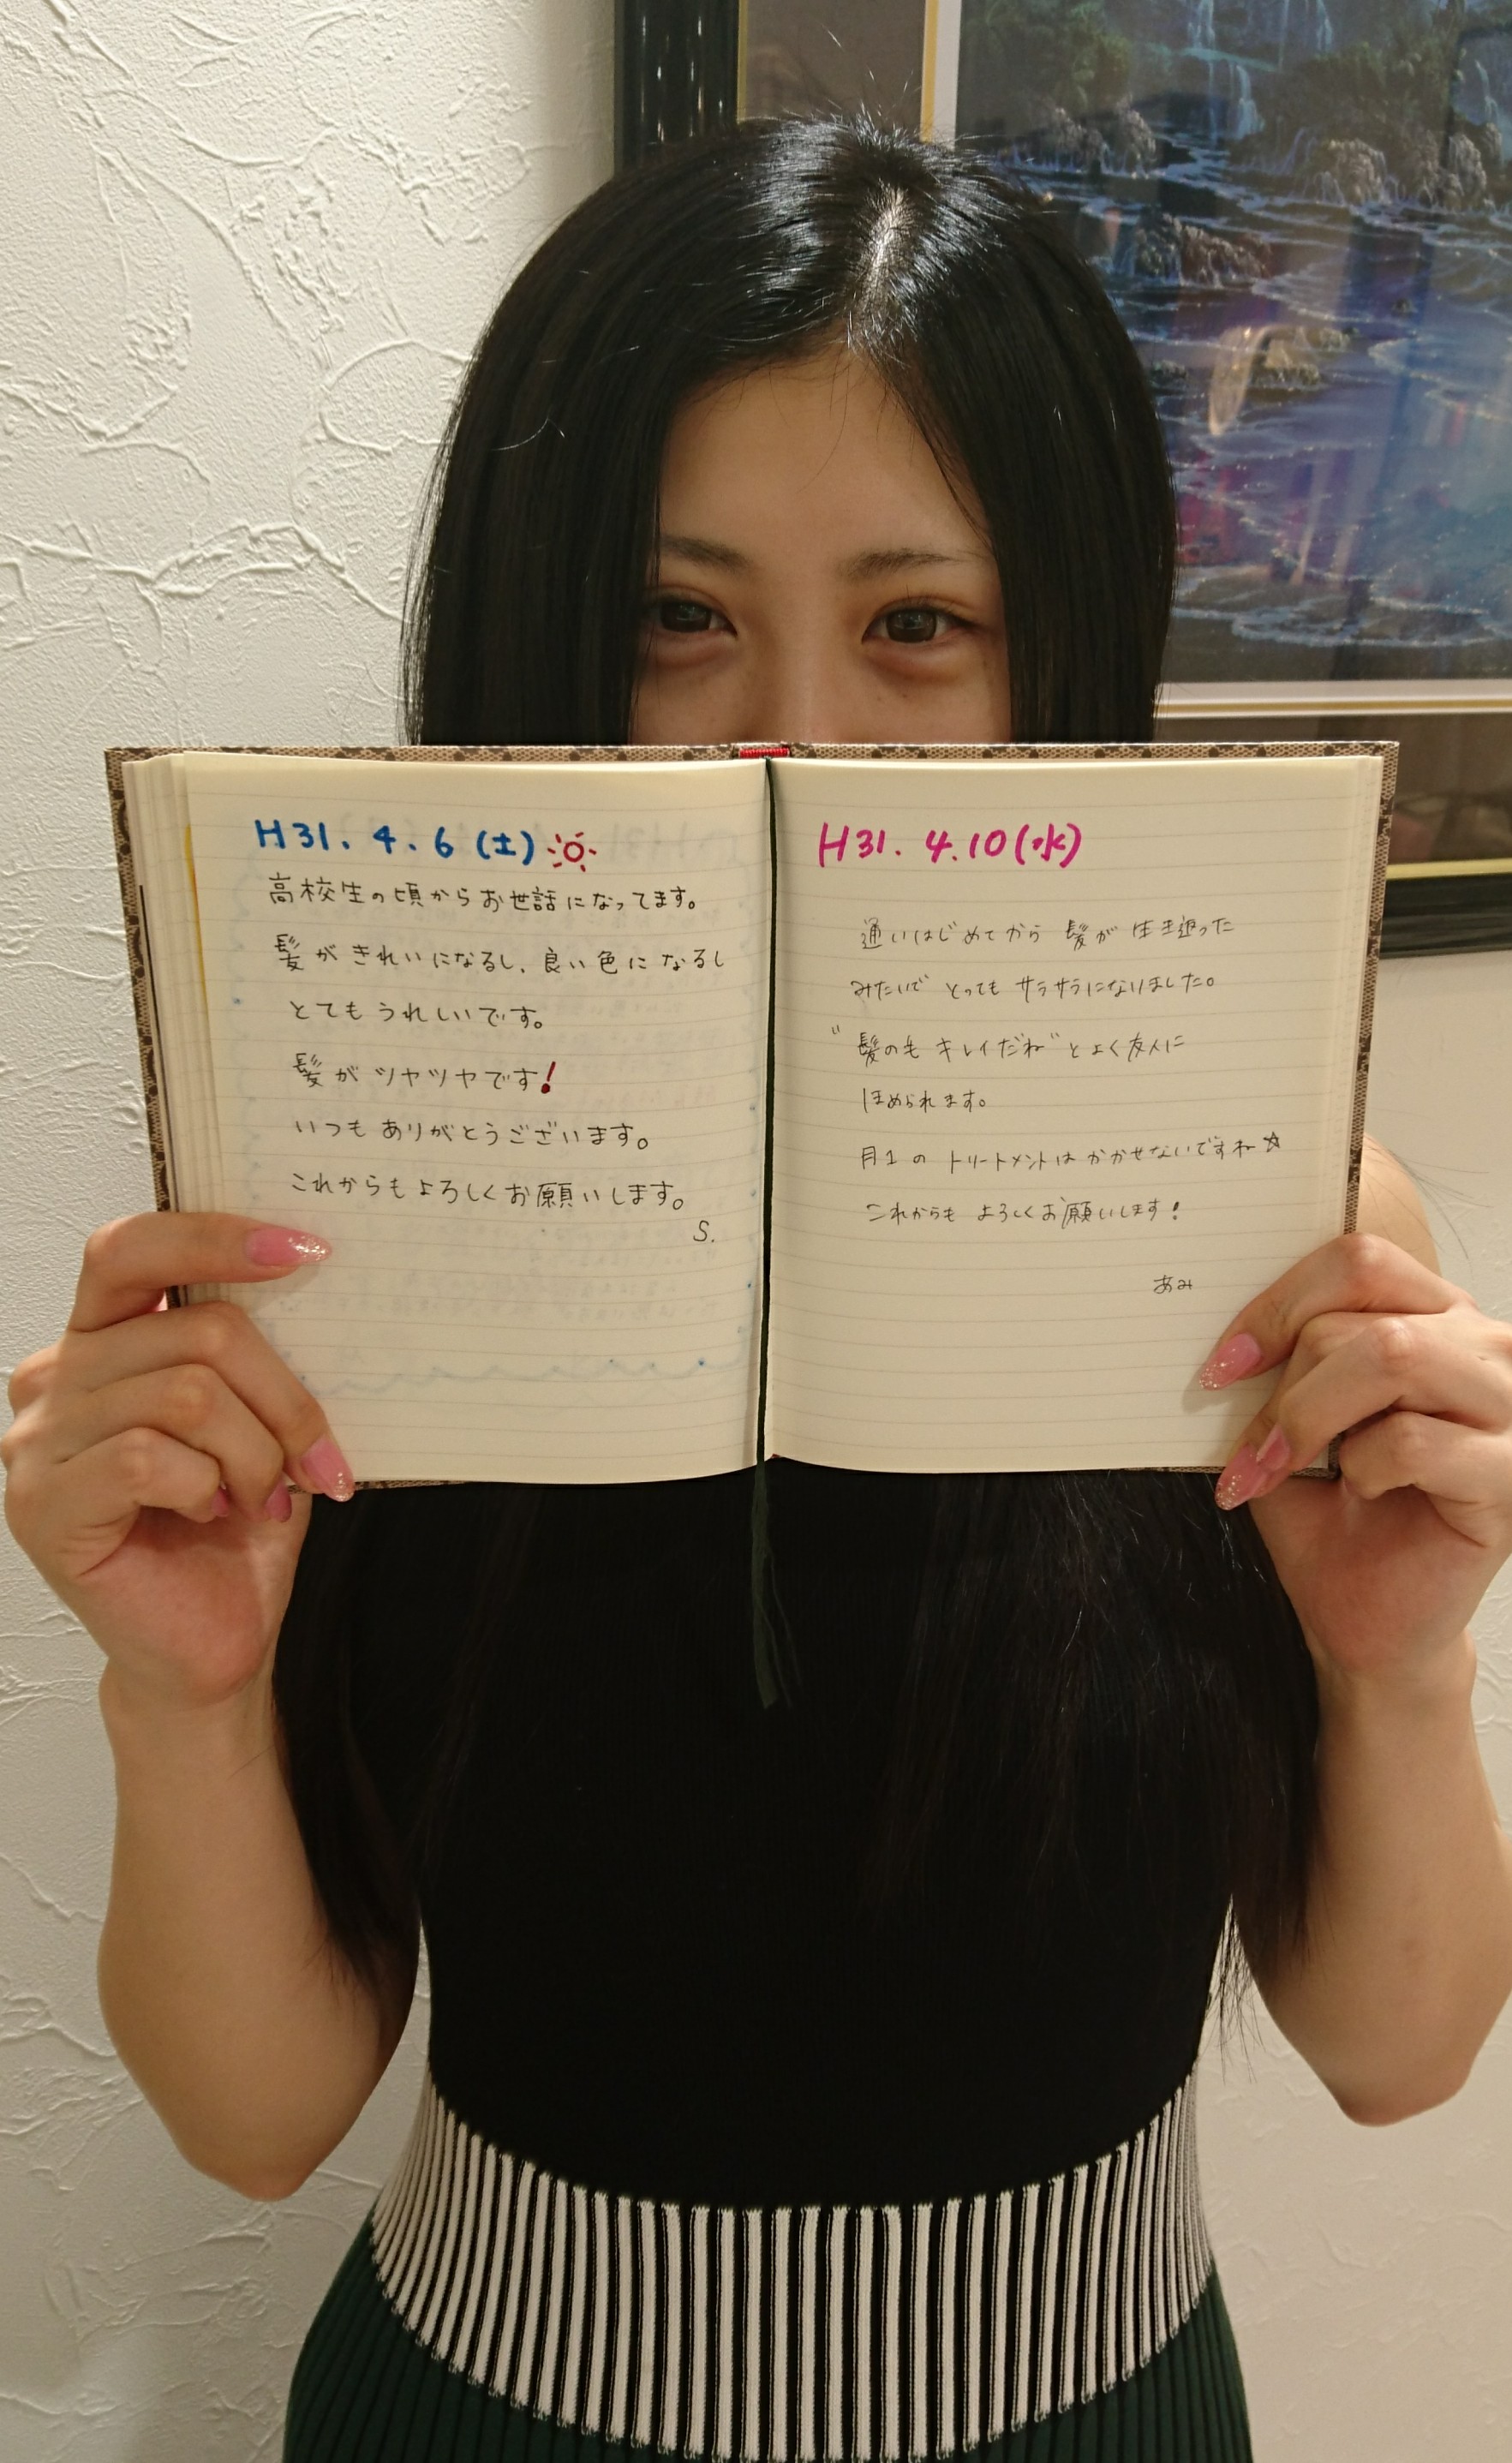 H31.4.6(土)
高校生の頃からお世話になってます。
髪がきれいになるし、良い色になるし
とてもうれしいです。
髪がツヤツヤです!
いつもありがとうございます。
これからもよろしくお願いします。
S.
H31.4.10(水)
通いはじめてから 髪が生き返った
みたいで とっても サラサラになりました。
"髪の毛 キレイだね"とよく友人に
ほめられます。
月1の トリートメントは かかせないですね☆
これからも よろしくお願いします!
あみ